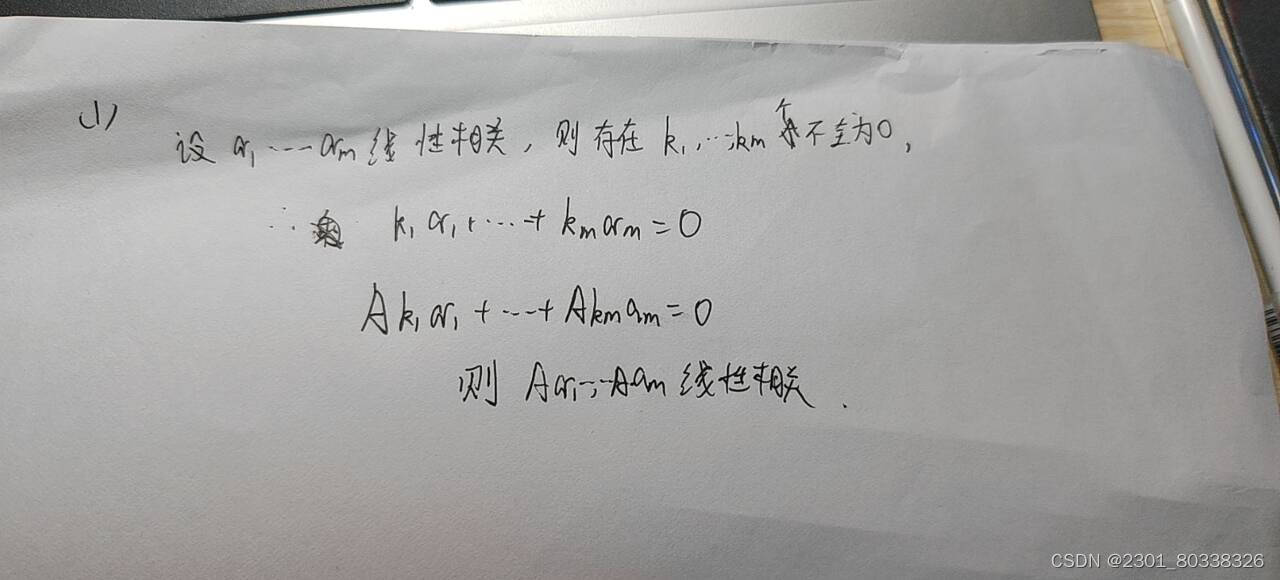 (1)
设 α₁ ⋯ αm 线性相关，则存在 k₁,⋯,km 不全为0，
∴ k₁α₁+⋯+kmαm=0
Ak₁α₁+⋯+Akmαm=0
则 Aα₁,⋯Aαm 线性相关.
CSDN @2301_80338326